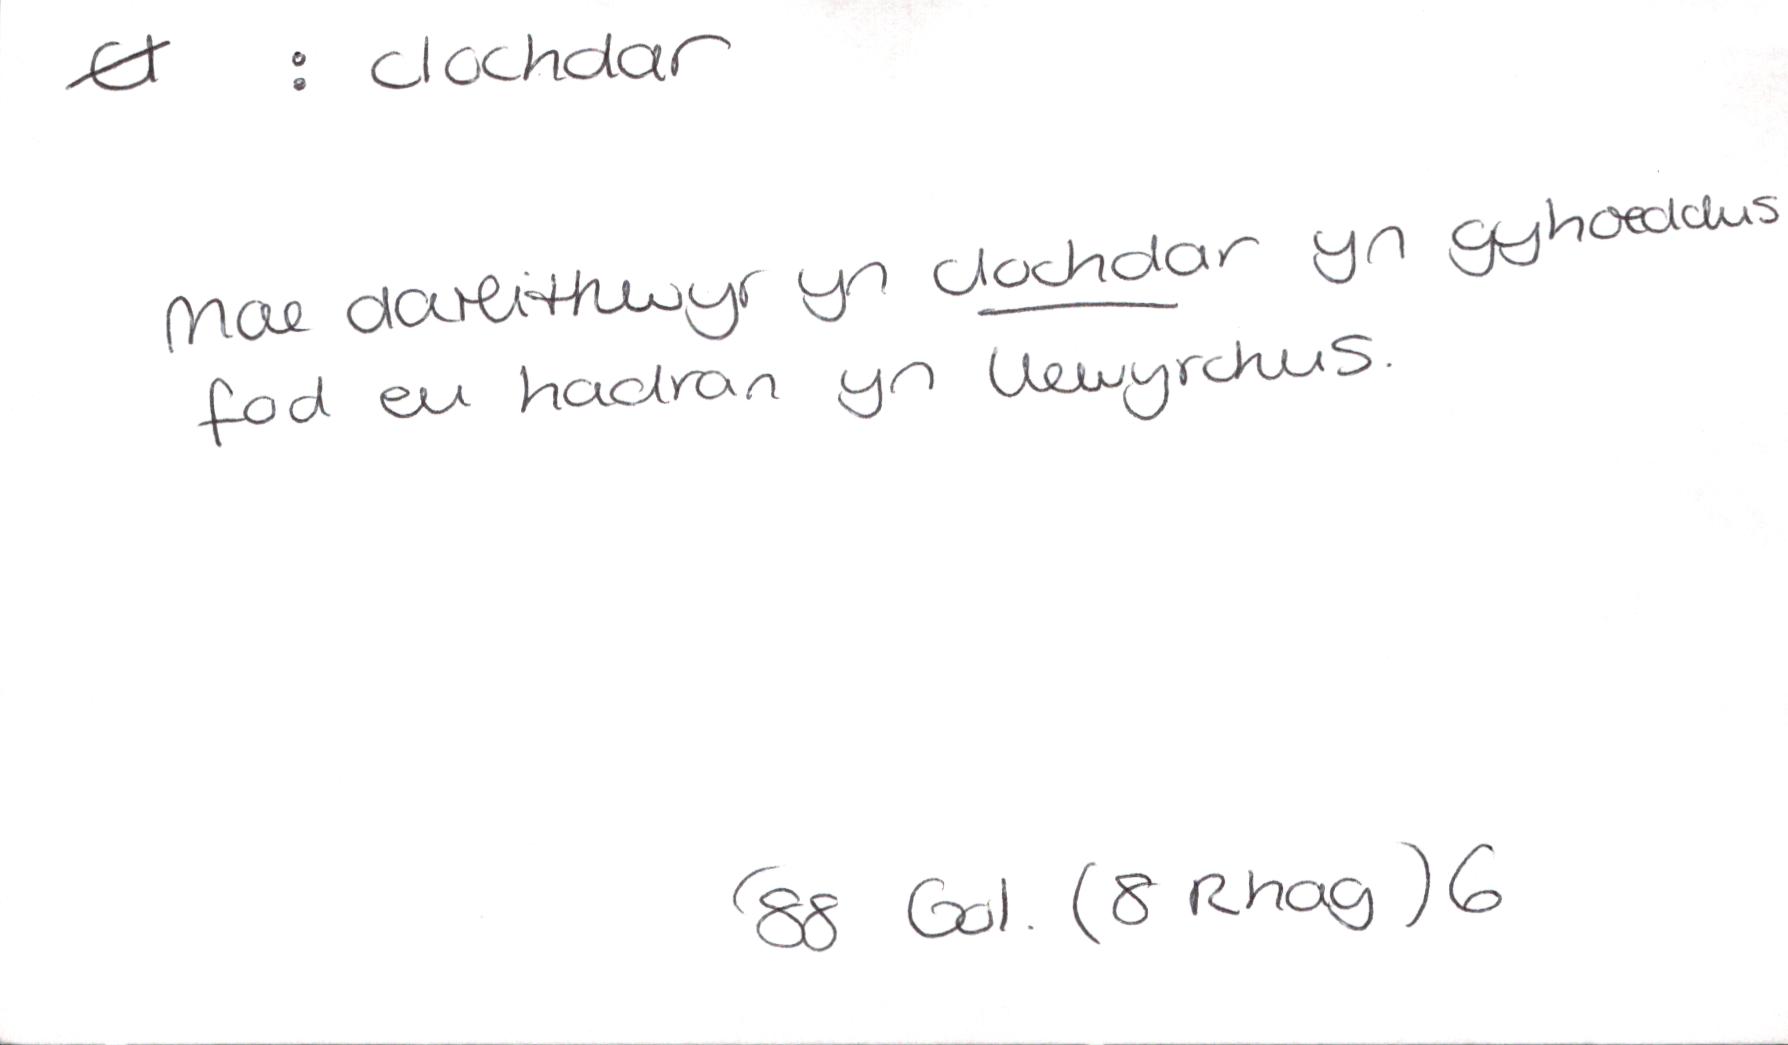 : clochdar
Mae darlithwyr yn clochdar yn gyhoeddus
fod eu hadran yn llewyrchus.
'88 Gol. (8 Rhag) 6